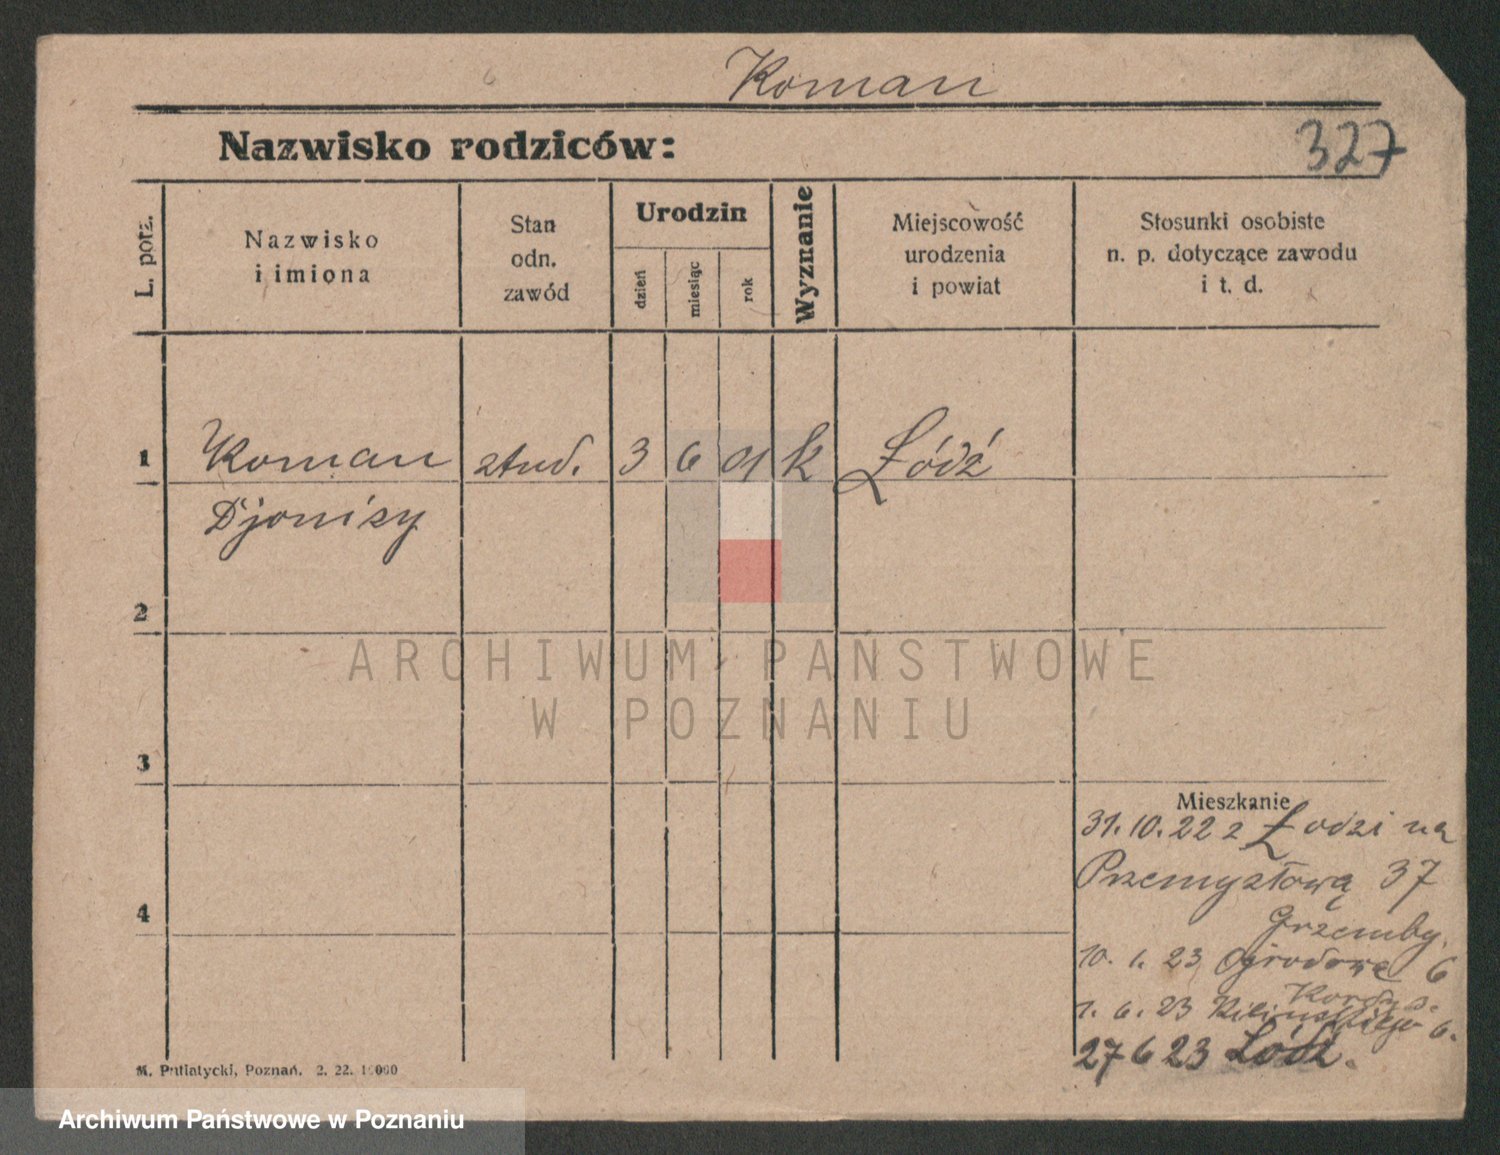 Koman
Nazwisko rodziców:
327
L. porz.
Nazwisko
i imiona
Stan
odn.
zawód
Urodzin
dzień
miesiąc
rok
Wyznanie
Miejscowość
urodzenia
i powiat
Stosunki osobiste
n. p. dotyczące zawodu
i t. d.
1 Koman stud. 3 6 01 k Łódź
Djonizy
2
ARCHIWUM PAŃSTWOWE
W POZNANIU
3
Mieszkanie
31.10.22 z Łodzi na
Przemysłową 37
4
Grzemby.
10. 1. 23 Ogrodowe 6
1. 6. 23 Kilińskiego 6.
27 6 23 Łódź.
M. Putiatycki, Poznań. 2. 22. 10000
Archiwum Państwowe w Poznaniu